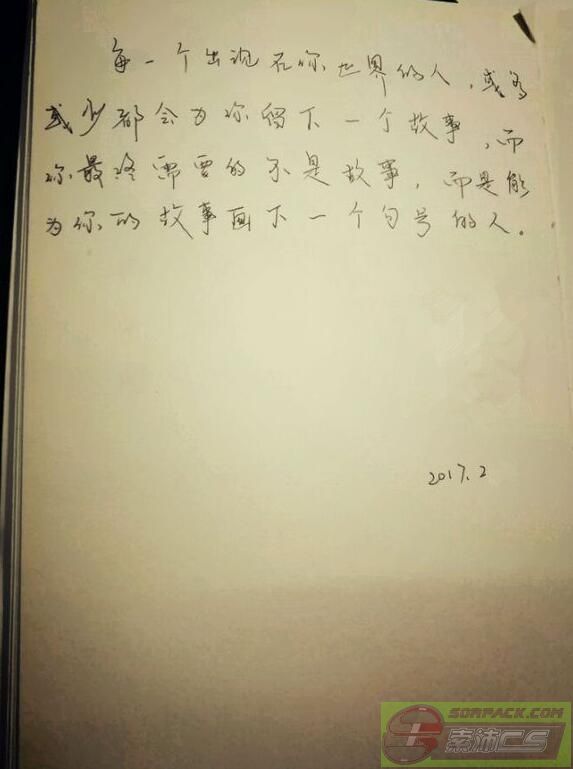 每一个出现在你世界的人，或多
或少都会为你留下一个故事，而
你最终需要的不是故事，而是能
为你的故事画下一个句号的人。
2017.2
SORPACK.COM
索沛CS